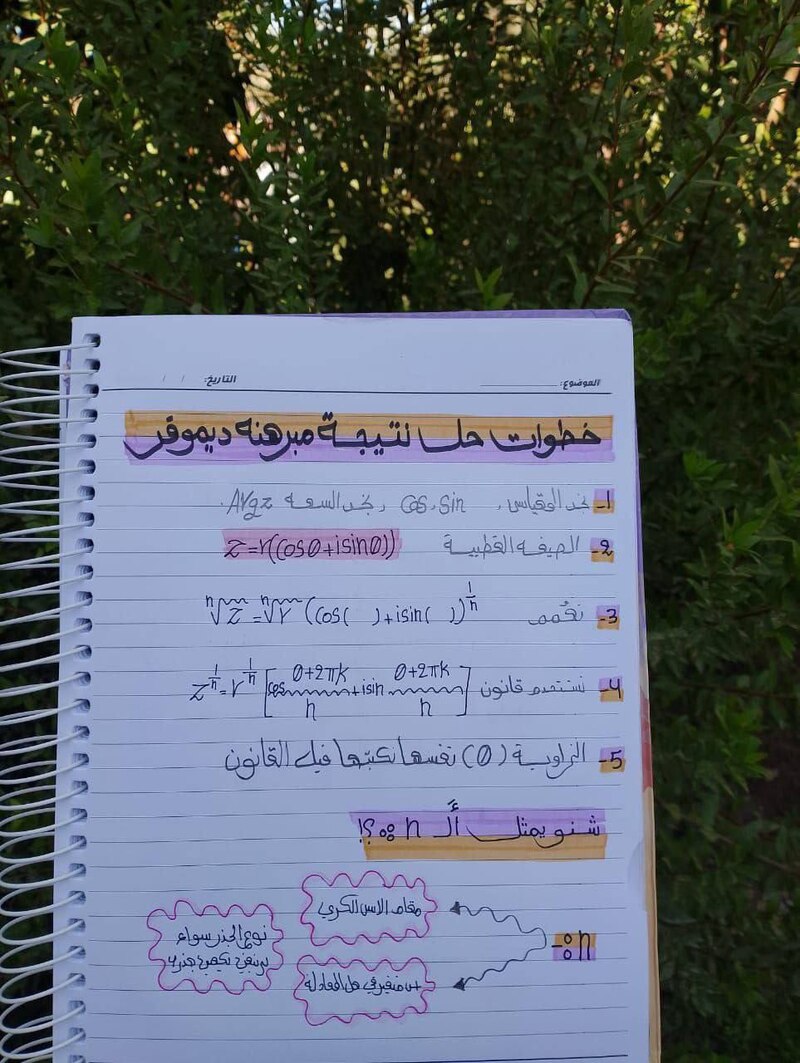 الموضوع: التاريخ: / /
خطوات حل نتيجة مبرهنه ديموفر
1- نجد المقياس، Cos، Sin، نجد السعه Argz.
2- الصيغه القطبية z=r(cosθ+isinθ))
3- نعمم ⁿ√z = ⁿ√r (cos( )+isin( ))^(1/n)
4- نستخدم قانون z^(1/n) = r^(1/n) [cos (θ+2πk)/n + isin (θ+2πk)/n]
5- الزاوية (θ) نفسها نكتبها في القانون
شنو يمثل ألـ n ؟!
n:-
مقام الاس الكسري
نوع الجذر سواء
تربيعي تكعيبي
في حل المعادله